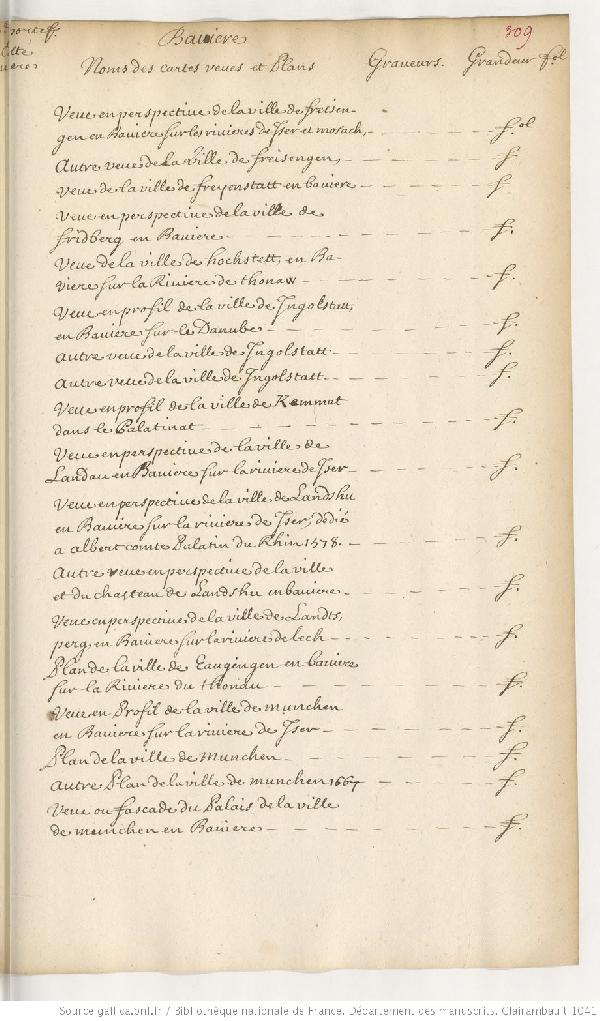 Baviere
309
Noms des cartes veues et Plans Graveurs. Grandeur fol
Veue en perspective de la ville de freisen-
gen en Baviere sur les rivieres de Jser et mosach, f.ol
Autre veue de la ville de freisengen, f.
veue de la ville de freyenstatt en baviere f.
Veue en perspective de la ville de
fridberg en Baviere f.
Veue de la ville de hochstett, en Ba-
viere sur la Riviere de thonaw f.
Veue en profil de la ville de Jngolstatt,
en Baviere sur le Danube f.
Autre veue de la ville de Jngolstatt f.
Autre veue de la ville de Jngolstatt f.
Veue en profil de la ville de Kemnat
dans le Palatinat f.
Veue en perspective de la ville de
Landau en Baviere sur la riviere de Jser f.
Veue en perspective de la ville de Landshu
en Baviere sur la riviere de Jser, dedié
a albert comte Palatin du Rhin 1578. f.
Autre veue en perspective de la ville
et du chasteau de Landshu en baviere f.
Veue en perspective de la ville de Landts,
perg en Baviere sur la riviere de lech f.
Plan de la ville de Laugengen en baviere
sur la Riviere du thonau f.
Veue en Profil de la ville de munchen
en Baviere sur la riviere de Jser f.
Plan de la ville de Munchen f.
Autre Plan de la ville de munchen 1667 f.
Veue ou fascade du Palais de la ville
de munchen en Baviere f.
Source gallica.bnf.fr / Bibliothèque nationale de France. Département des manuscrits. Clairambault 1041